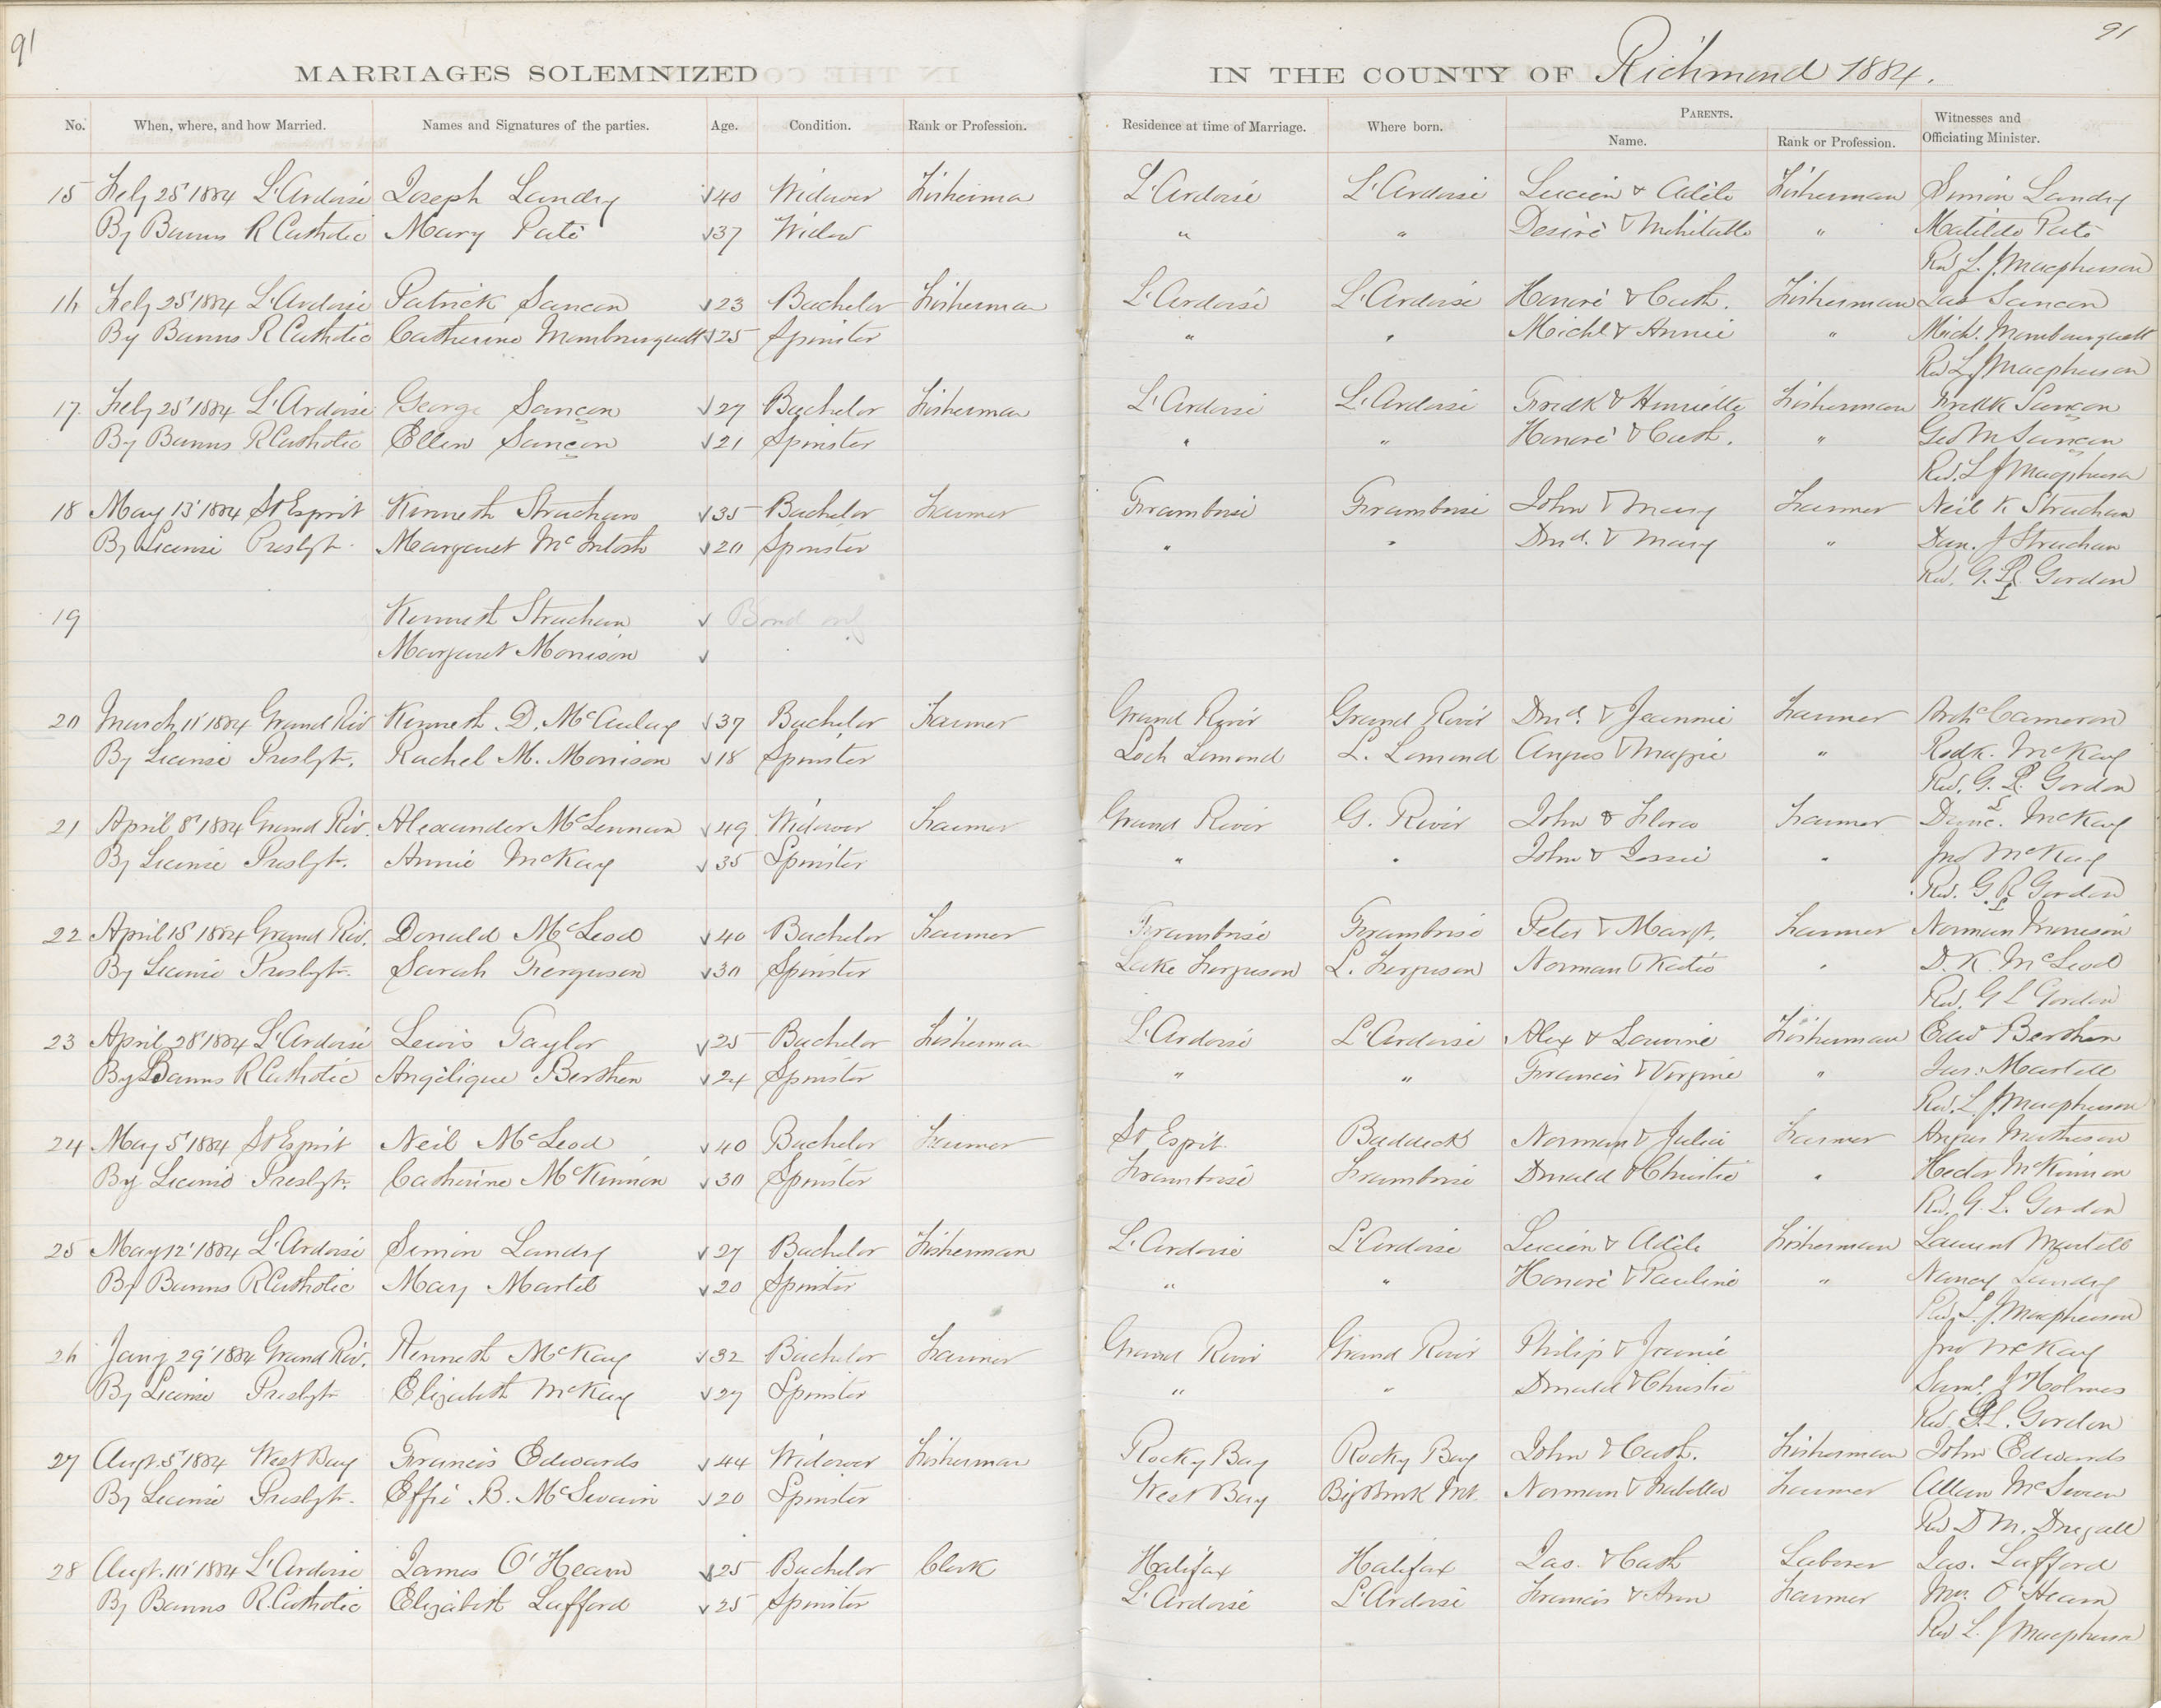 91
91
MARRIAGES SOLEMNIZED IN THE COUNTY OF Richmond 1884.
No. When, where, and how Married. Names and Signatures of the parties. Age. Condition. Rank or Profession. Residence at time of Marriage. Where born. PARENTS. Name. Rank or Profession. Witnesses and Officiating Minister.
15 Feby 25' 1884 L'Ardoise Joseph Landry 40 Widower Fisherman L'Ardoise L'Ardoise Lucien & Adèle Fisherman Simon Landry
By Banns R Catholic Mary Pate 37 Widow " " Desiré & Mehitable " Matilda Pate
Revd L. J. Macpherson
16 Feby 25' 1884 L'Ardoise Patrick Sancon 23 Bachelor Fisherman L'Ardoise L'Ardoise Honoré & Cath. Fisherman Jas Sancon
By Banns R Catholic Catherine Mombourquett 25 Spinster " " Michl & Annie " Michl. Mombourquett
Rev L J Macpherson
17. Feby 25' 1884 L'Ardoise George Sançon 27 Bachelor Fisherman L'Ardoise L'Ardoise Fredk & Henriette Fisherman Fredk Sançon
By Banns R Catholic Ellen Sançon 21 Spinster " " Honoré & Cath. " Geo M Sançon
Rev. L J Macpherson
18 May 13' 1884 St Esprit Kenneth Strachan 35 Bachelor Farmer Framboise Framboise John & Mary Farmer Neil K Strachan
By License Presbyt. Margaret McIntosh 20 Spinster " " Dnd. & Mary " Dan. J Strachan
Rev. G. L. Gordon
19 Kenneth Strachan Bond only
Margaret Morrison
20 March 11' 1884 Grand Riv Kenneth D. McAulay 37 Bachelor Farmer Grand River Grand River Dnd. & Jeannie Farmer Archd Cameron
By License Presbyt. Rachel M. Morrison 18 Spinster Loch Lomond L. Lomond Angus & Maggie " Rodk. McKay
Rev. G. L. Gordon
21 April 8' 1884 Grand Riv. Alexander McLennan 49 Widower Farmer Grand River G. River John & Flora Farmer Dunc. McKay
By License Presbyt. Annie McKay 35 Spinster " " John & Jessie " Jno McKay
Rev. G. L. Gordon
22 April 15' 1884 Grand Riv. Donald McLeod 40 Bachelor Farmer Framboise Framboise Peter & Margt. Farmer Norman Morrison
By License Presbyt. Sarah Ferguson 30 Spinster Lake Ferguson L. Ferguson Norman & Katie " D. K. McLeod
Rev. G L Gordon
23 April 28' 1884 L'Ardoise Lewis Taylor 25 Bachelor Fisherman L'Ardoise L'Ardoise Alex & Louvine Fisherman Edwd Bershen
By Banns R Catholic Angèlique Bershen 24 Spinster " " Francis & Virginie " Jas. Martell
Rev. L. J. Macpherson
24 May 5' 1884 St Esprit Neil McLeod 40 Bachelor Farmer St Esprit Baddeck Norman & Julia Farmer Angus Matheson
By License Presbyt. Catherine McKinnon 30 Spinster Framboise Framboise Donald & Christie " Hector McKinnon
Rev. G. L. Gordon
25 May 12' 1884 L'Ardoise Simon Landry 27 Bachelor Fisherman L'Ardoise L'Ardoise Lucien & Adèle Fisherman Laurent Martell
By Banns R Catholic Mary Martell 20 Spinster " " Honoré & Pauline " Nancy Landry
Rev. L. J. Macpherson
26 Jany 29' 1884 Grand Riv. Kenneth McKay 32 Bachelor Farmer Grand River Grand River Philip & Jeanie Jno McKay
By License Presbyt Elizabeth McKay 27 Spinster " " Donald & Christie Saml. J Holmes
Rev. G. L. Gordon
27 Augt. 5' 1884 West Bay Francis Edwards 44 Widower Fisherman Rocky Bay Rocky Bay John & Cath. Fisherman John Edwards
By License Presbyt. Effie B. McSwain 20 Spinster West Bay Big Brook Norman & Isabella Farmer Allan McSwain
Rev D M. Dugall
28 Augt. 10' 1884 L'Ardoise James O'Hearn 25 Bachelor Clerk Halifax Halifax Jas. & Cath Laborer Jas. Lafford
By Banns R. Catholic Elizabeth Lafford 25 Spinster L'Ardoise L'Ardoise Francis & Ann Farmer O'Hearn
Rev L. J Macpherson